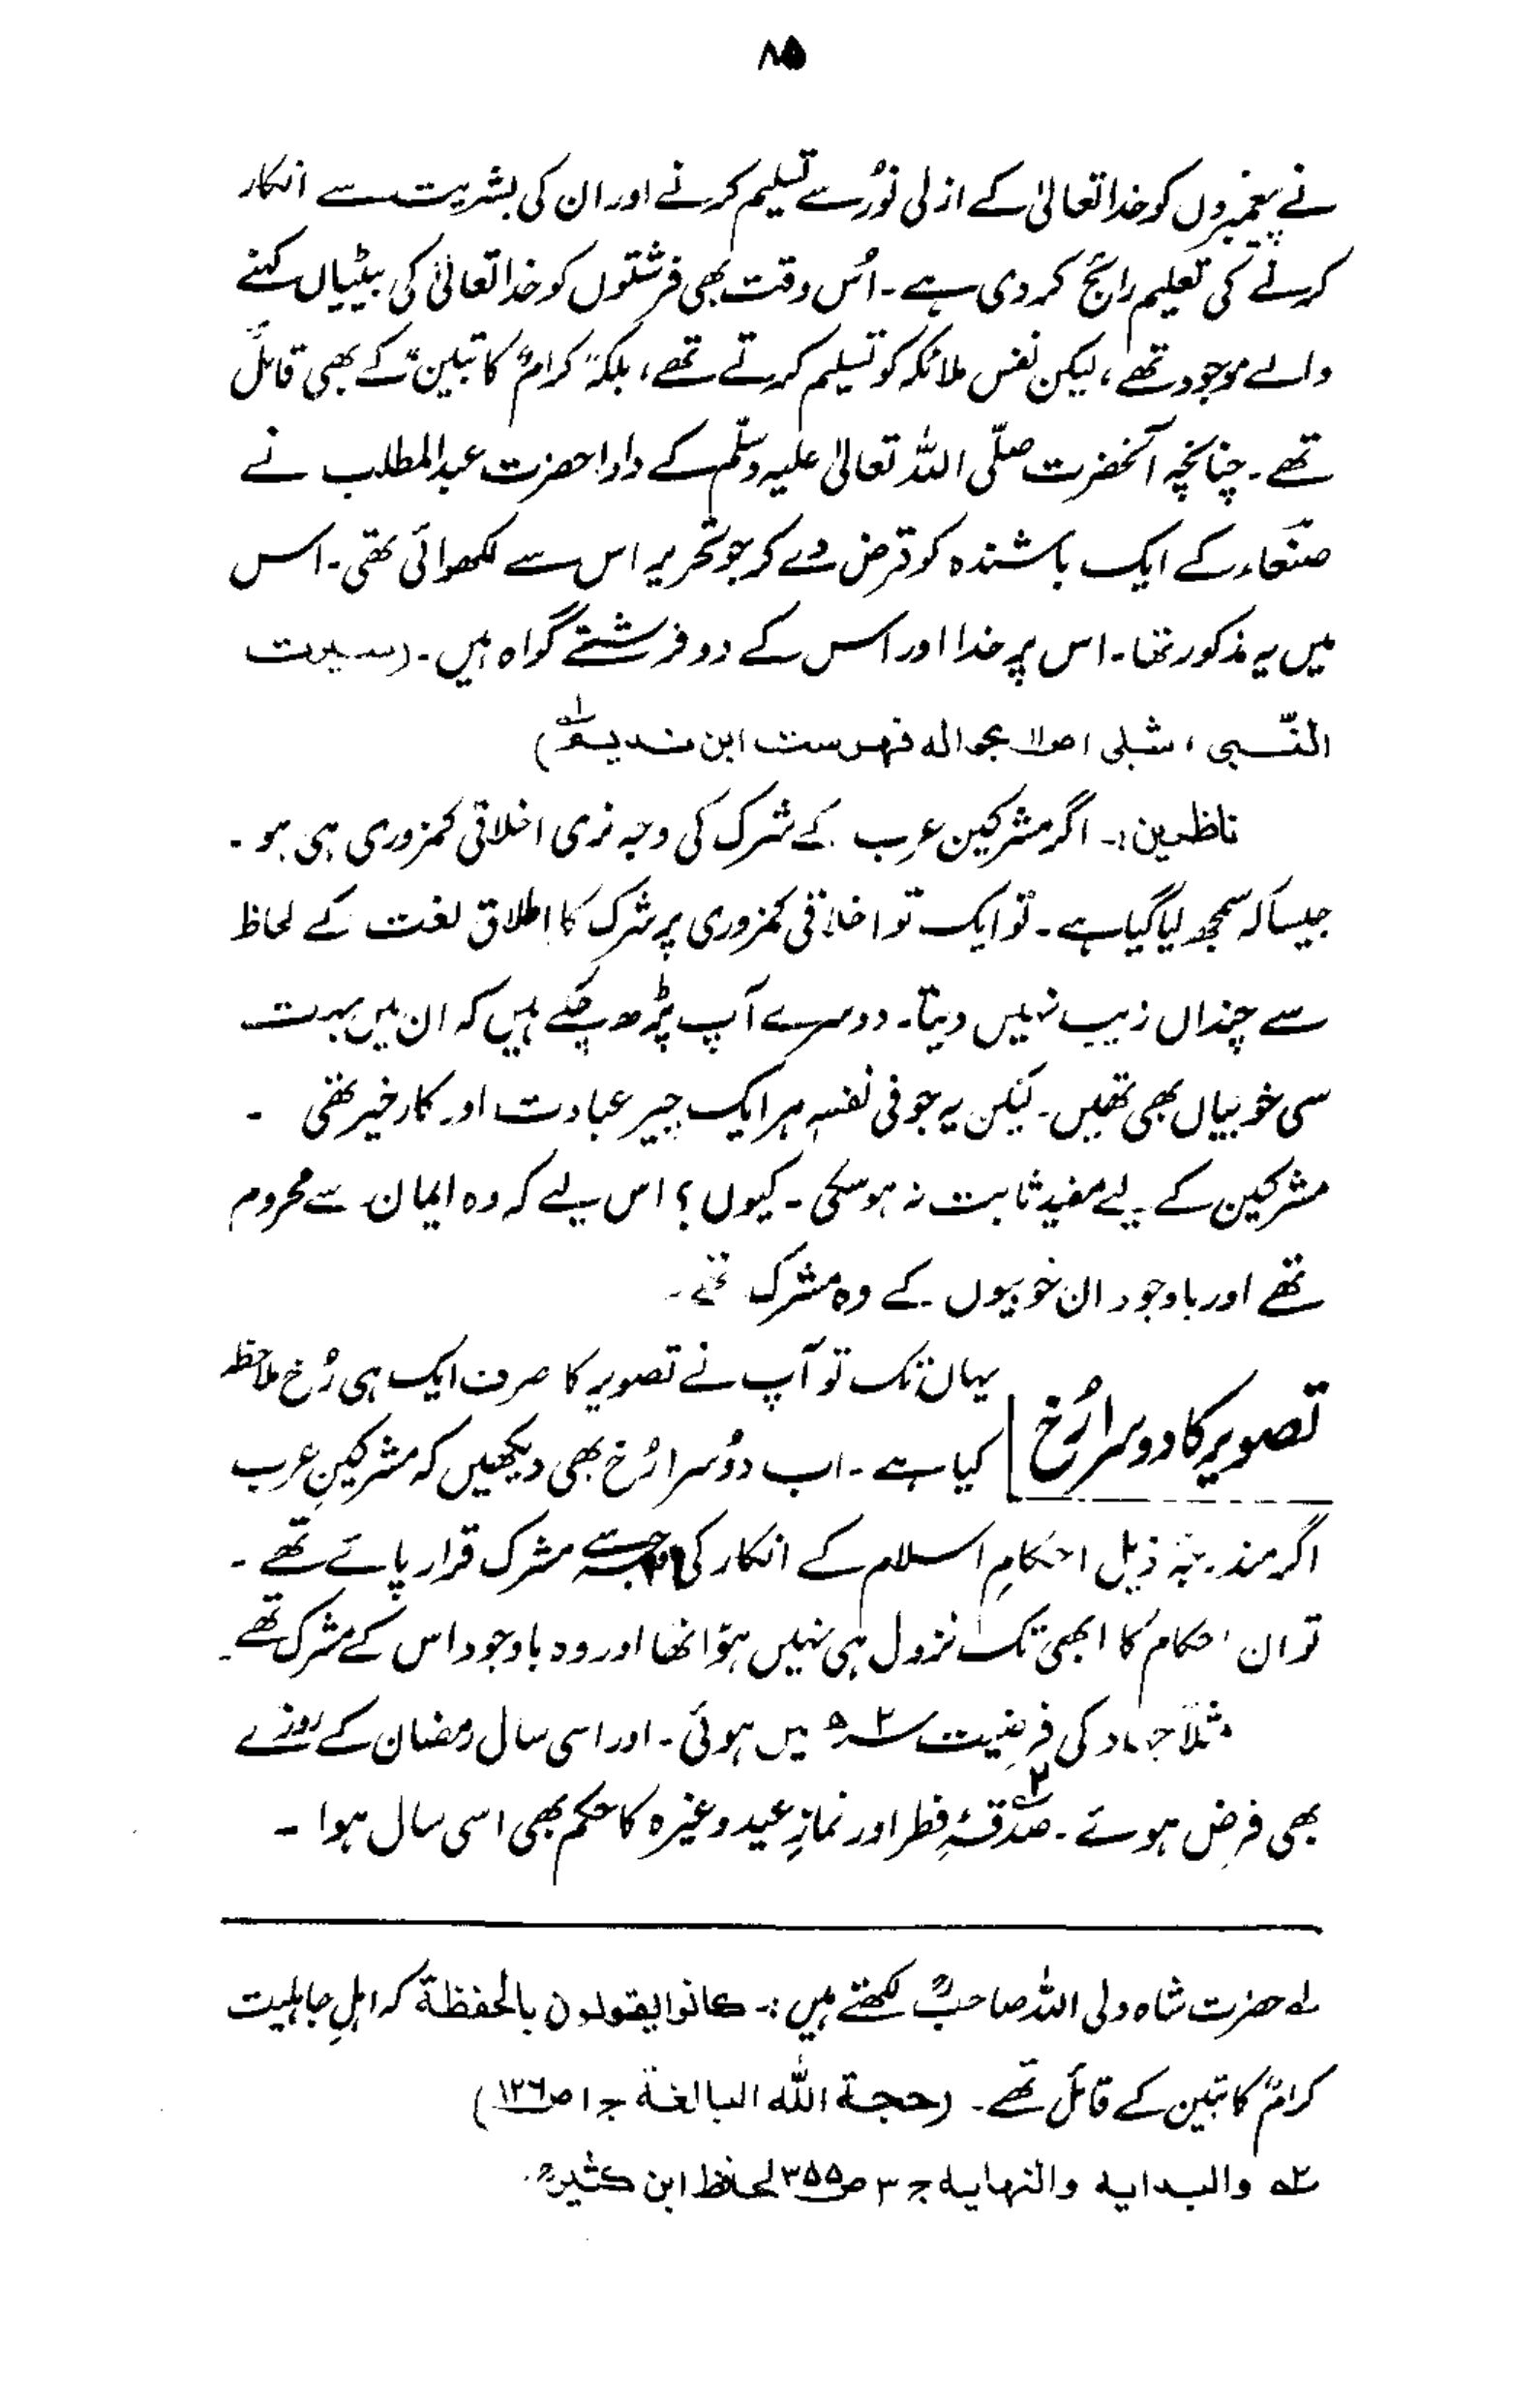 ۸۵
نے پیغمبروں کو خدا تعالیٰ کے ازلی نُور سے تسلیم کرنے اور ان کی بشریت سے انکار
کرنے کی تعلیم رائج کر دی ہے۔ اُس وقت بھی فرشتوں کو خدا تعالیٰ کی بیٹیاں کہنے
والے موجود تھے، لیکن نفس ملائکہ کو تسلیم کرتے تھے، بلکہ "کرامً کاتبین" کے بھی قائل
تھے۔ چنانچہ آنحضرت صلّی اللہ تعالیٰ علیہ وسلّم کے دادا حضرت عبدالمطلب نے
صنعاء کے ایک باشندہ کو قرض دے کر جو تحریر اس سے لکھوائی تھی۔ اس
میں یہ مذکور تھا۔ اس پر خدا اور اس کے دو فرشتے گواہ ہیں۔ (سیرت
النّبی، شبلی ۱ ص۱۱ بحوالہ فہرست ابن ندیم)۱؎
ناظرین:۔ اگر مشرکین عرب کے شرک کی وجہ نری اخلاقی کمزوری ہی ہو۔
جیسا کہ سمجھ لیا گیا ہے۔ تو ایک تو اخلاقی کمزوری پر شرک کا اطلاق لغت کے لحاظ
سے چنداں زیب نہیں دیتا۔ دوسرے آپ پڑھ چکے ہیں کہ ان میں بہت
سی خوبیاں بھی تھیں۔ لیکن یہ جو فی نفسہٖ ہر ایک چیز عبادت اور کار خیر تھی ۔
مشرکین کے لیے مفید ثابت نہ ہو سکی۔ کیوں؟ اس لیے کہ وہ ایمان سے محروم
تھے اور باوجود ان خوبیوں کے وہ مشرک تھے۔
تصویر کا دوسرا رُخ
یہاں تک تو آپ نے تصویر کا صرف ایک ہی رُخ ملاحظہ
کیا ہے۔ اب دوُسرا رُخ بھی دیکھیں کہ مشرکینِ عرب
اگر مندرجہ ذیل احکامِ اسلام کے انکار کی وجہ سے مشرک قرار پاتے تھے۔
تو ان احکام کا ابھی تک نزول ہی نہیں ہوٗا تھا اور وہ باوجود اس کے مشرک تھے۔
مثلاً جہاد کی فرضیت ۲ھ میں ہوئی۔ اور اسی سال رمضان کے روزے
بھی فرض ہوئے۔۲؎ صدقۂِ فطر اور نمازِ عید وغیرہ کا حکم بھی اسی سال ہوا ۔
۱؎ حضرت شاہ ولی اللہ صاحبؒ لکھتے ہیں:۔ کانوا یقولون بالحفظۃ کہ اہلِ جاہلیت
کرامً کاتبین کے قائل تھے۔ (حجۃ اللہ البالغۃ ج۱ ص۱۲۶)
۲؎ والبدایہ والنہایہ ج ۳ ص۳۵۵ لحافظ ابن کثیرؒ